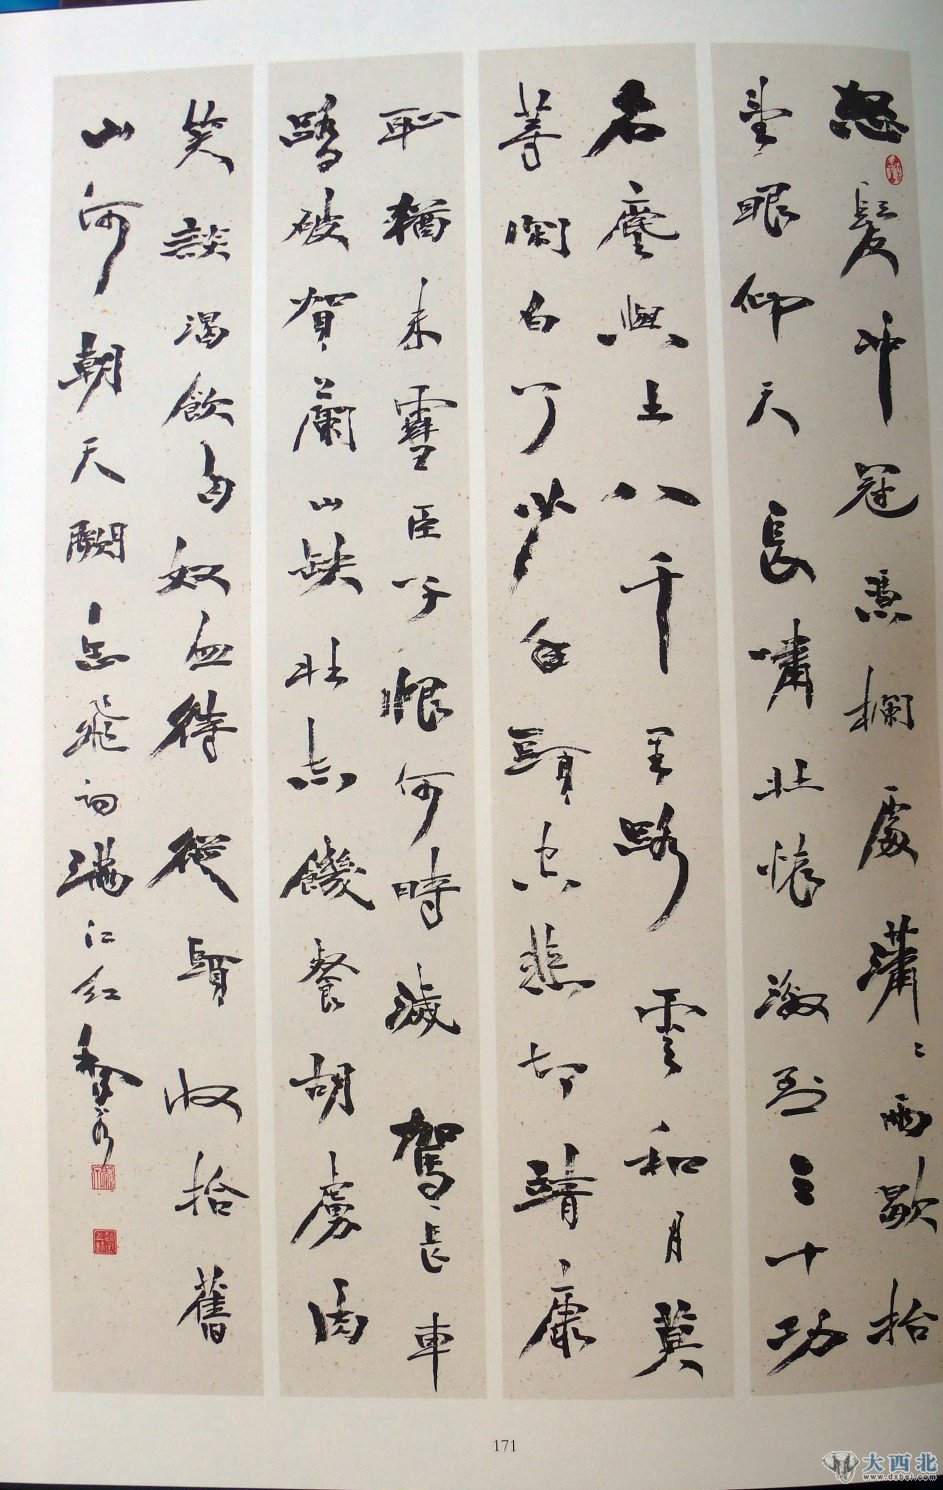 怒髮冲冠憑欄處瀟〻雨歇抬
望眼仰天長嘯壯懷激烈三十功
名塵與土八千里路雲和月莫
等閑白了少年頭空悲切靖康
恥猶未雪臣子恨何時滅駕長車
踏破賀蘭山缺壯志饑餐胡虜肉
笑談渴飲匈奴血待從頭收拾舊
山河朝天闕 岳飛詞滿江红
171
大西北
www.dxbei.com